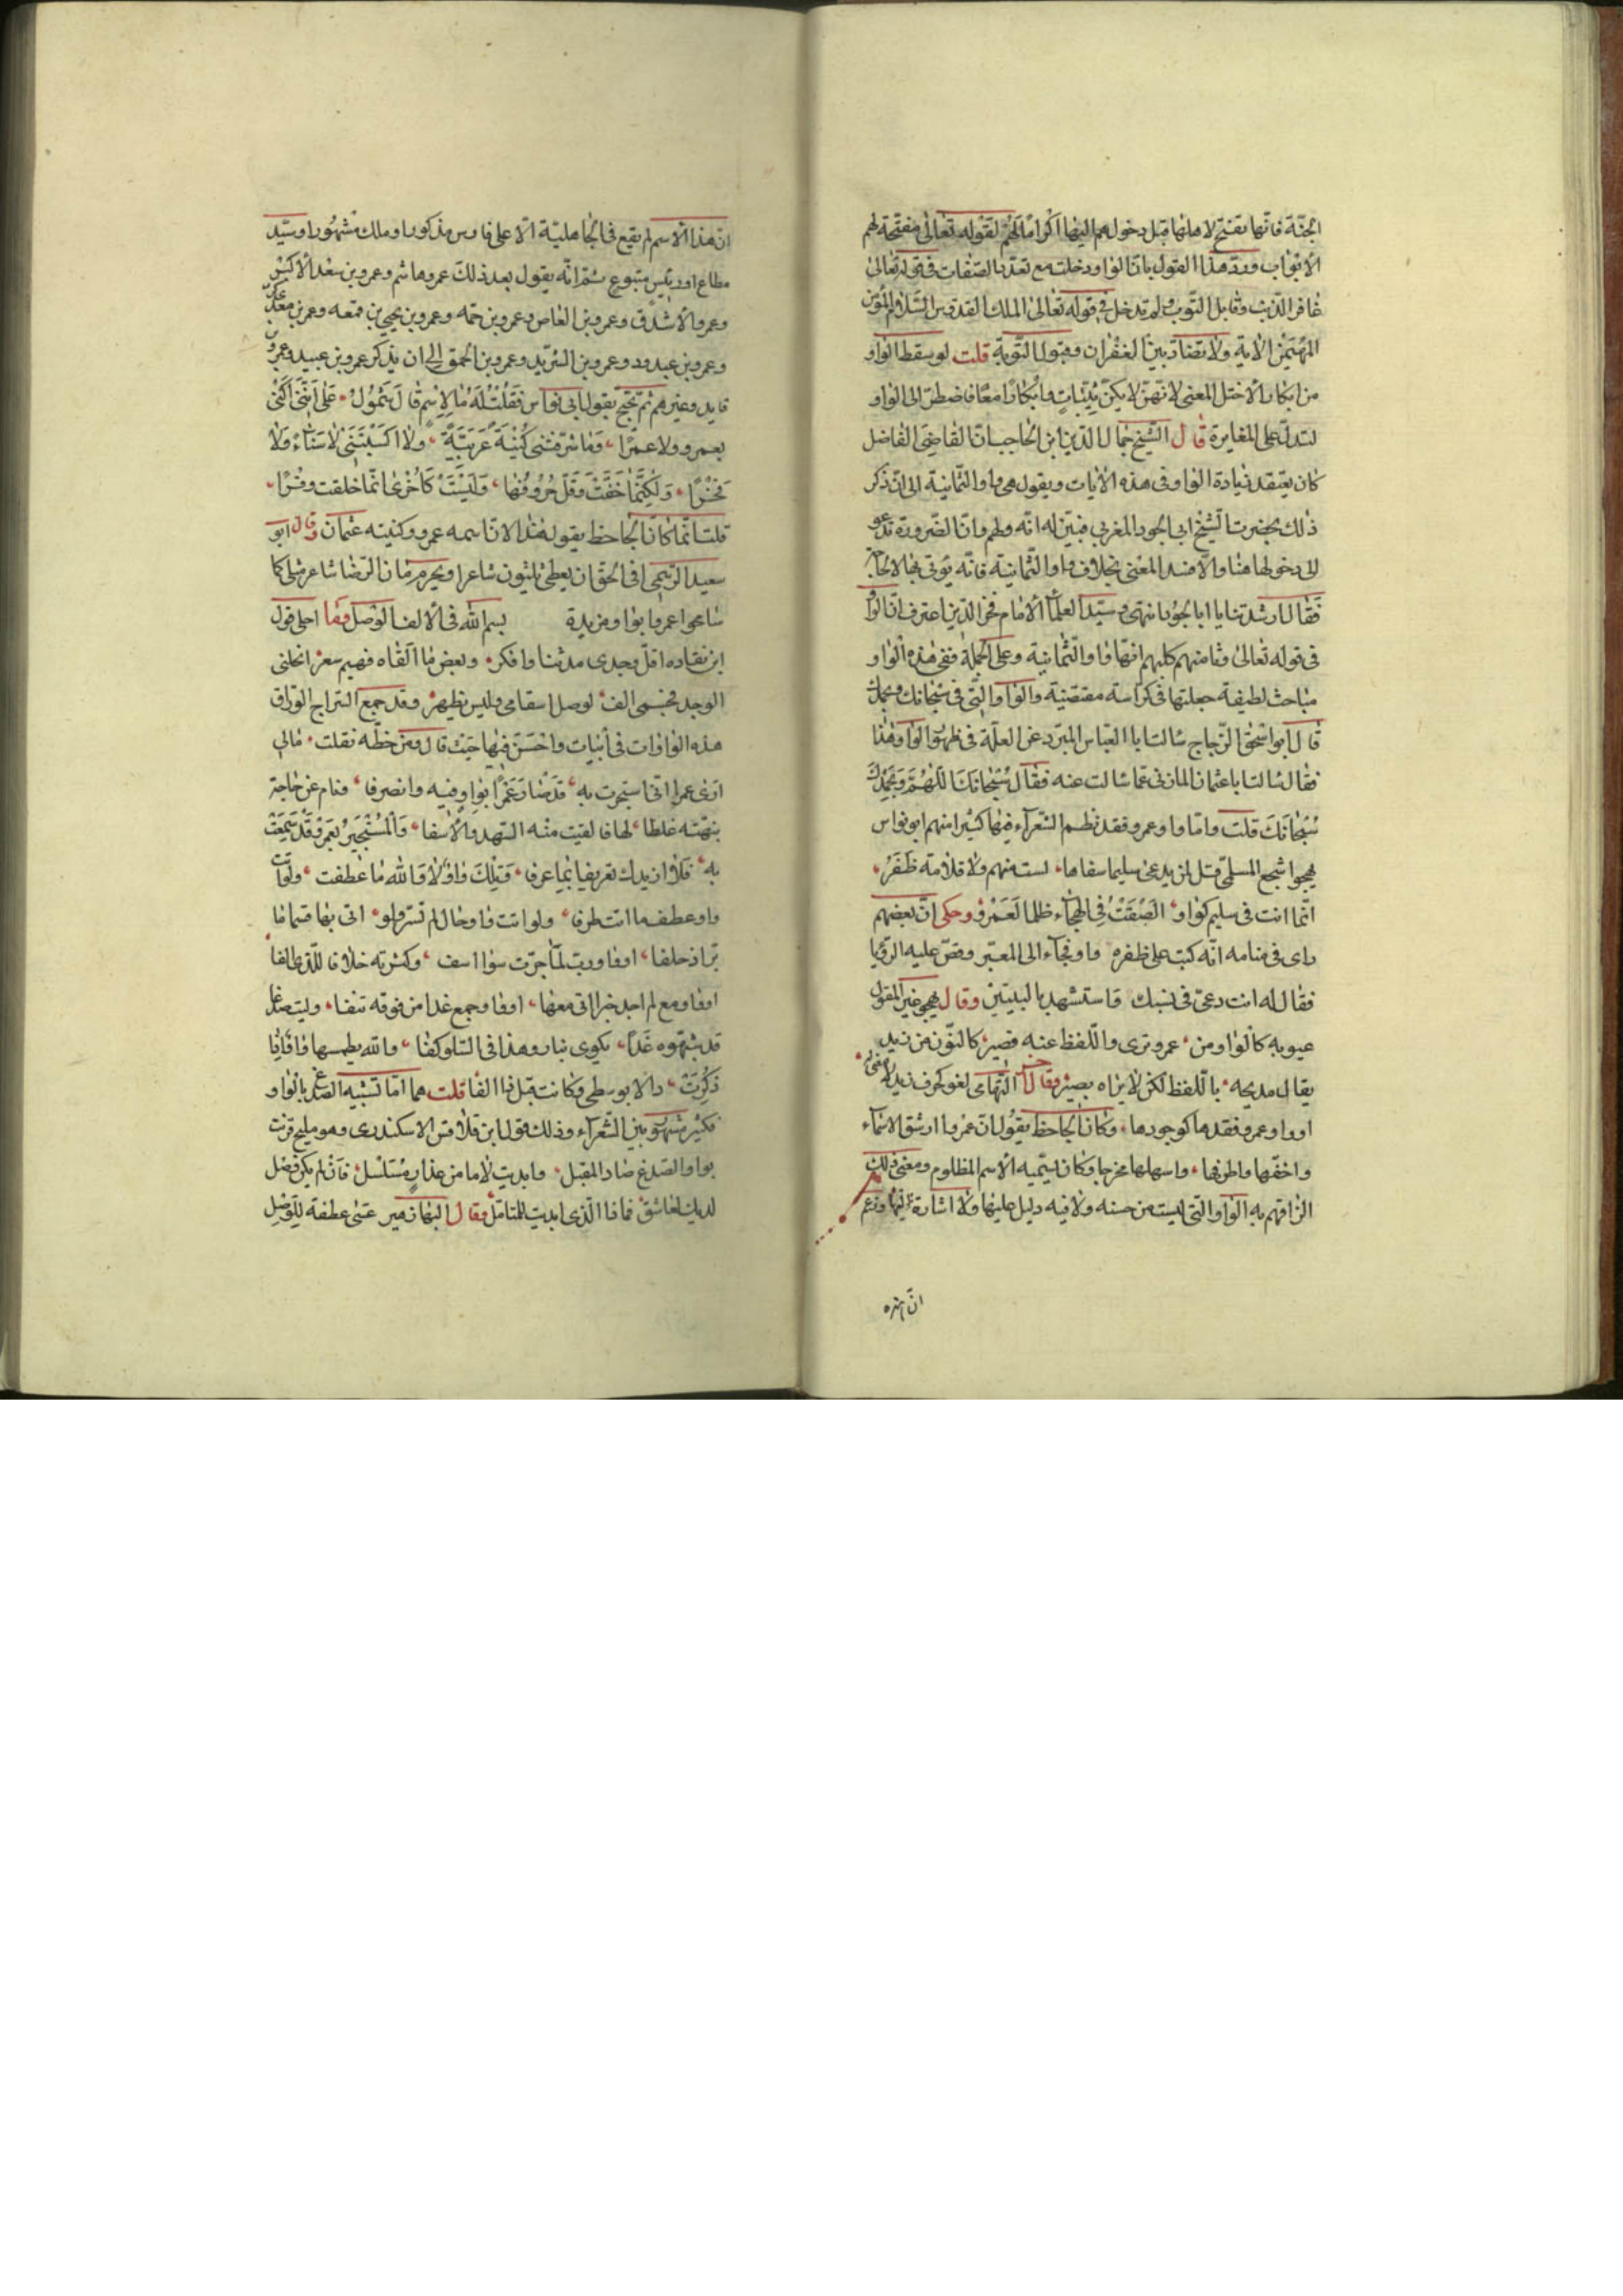 الجنّة فانّها تفتح لاهلها قبل دخولهم اليها اكرامًا لهم لقوله تعالى مفتّحة لهم
الابواب وردّ هذا القول بانّ الواو دخلت مع تعدّد الصّفات في قوله تعالى
غافر الذّنب وقابل التّوب ولم تدخل في قوله تعالى الملك القدوس السّلام المؤمن
المهيمن الاية ولا تضادّ بين الغفران وقبول التّوبة قلت لو سقط الواو
من ابكارا لاختل المعنى لانّهنّ لا يكنّ ثيّبات وابكارًا معًا فاضطرّ الى الواو
لتدلّ على المغايرة قال الشّيخ جمال الدّين ابن الحاجب انّ القاضي الفاضل
كان يعتقد زيادة الواو في هذه الايات ويقول هي واو الثّمانية الى ان ذكر
ذلك بحضرت الشّيخ ابي الجود المغربي فبيّن له انّه وهم وانّ الضّرورة تدعو
الى دخولها هنا والّا فسد المعنى بخلاف واو الثّمانية فانّه يؤتى بها لا لحاجة
فقال ارشدتنا يا ابا الجود انتهى وسيّد العلمآ الامام فخر الدّين اعترف انّ الواو
في قوله تعالى وثامنهم كلبهم انّها واو الثّمانية وعلى الجملة ففي هذه الواو
مباحث لطيفة جعلتها في كراسة مقتضية والواو التي في سبحانك وبحمدك
قال ابو اسحق الزّجاج سالت ابا العبّاس المبرّد عن العلّة في ظهور الواو هنا
فقال سالت ابا عثمان المازني عمّا سالت عنه فقال سبحانك اللّهمّ وبحمدك
سبحانك قلت وامّا واو عمرو فقد نظم الشعرآء فيها كثيرا منهم ابو نواس
يهجو اشجع السلمي قل لمن يدعى سليما سفاها، لست منهم ولا قلامة ظفر،
انّما انت في سليم كواو، الصقت في الهجآء ظلما لعمرو وحكى انّ بعضهم
راى في منامه انّه كتب على ظفره واو فجآء الى المعبّر وقصّ عليه الرّؤيا
فقال له انت دعيّ في نسبك فاستشهد بالبيتين وقال يهجو غير المقول
عيوبه كالواو من، عمرو ترى واللّفظ عنه قصير، كالنّون من زيد
يقال مديحه، باللّفظ لكن لا يراه بصير وقال التّهامي لغو كحرف زيد لا معنى له،
او واو عمرو فقدها كوجودها، وكان الجاحظ يقول انّ عمروا ارشق الاسمآء
واخفّها واظرفها، واسهلها مخرجا وكان يسمّيه الاسم المظلوم ومعنى ذلك
الزاقهم به الواو التي ليست من جنسه ولا فيه دليل عليها ولا اشارة اليها وزعم
انّ هذا الاسم لم يقع في الجاهليّة الّا على فارس مذكور او ملك مشهور او سيّد
مطاع او رئيس متبوع ثمّ انّه يقول بعد ذلك عمرو هاشم وعمرو بن سعد الاكبر
وعمرو الاشدق وعمرو بن العاص وعمرو بن حمّه وعمرو بن يحيى بن قمعه وعمرو بن معدي كرب
وعمرو بن عبد ود وعمرو بن الشّريد وعمرو بن الحمق الى ان يذكر عمرو بن عبيد وعمرو بن
قايد وغيرهم ثم يحتج بقول ابي نواس فقلت له ما الاسم قال سمول، على انّني اكنى
بعمرو ولا عمرا، وما شرّفتني كنية عربيّة، ولا اكسبتني لا سناء ولا
فخرًا، ولكنّها خفّت وقلّ حروفها، وليست كاخرى انّما خلقت وقرًا،
قلت انّما كان الجاحظ يقول هذا لانّ اسمه عمرو وكنيته عثمان وقال ابو
سعيد الرّستمي افي الحق ان يعطى ثلثون شاعرا ويحرم ما دون الرّضا شاعر مثلي كما
سامحوا عمرا بواو مزيدة بسم الله في الالف الوصل وما احلى قول
ابن نقاده اقلّ وجدي مدنا وافكر، وبعض ما القاه فهيم سعز انحلني
الوجد فجسمي الف، لوصل اسقامي وليس تظهر، وقد جمع السّراج الورّاق
هذه الواوات في ابيات واحسن فيها حيث قال ومن خطّه نقلت، مالي
ارى عمرا اتى استجرت به، قد صار عمرًا بواو فيه وانصرفا، ونام عن حاجة
نبّهته غلطا، لها فالقيت منه السّهد والاسفا، والمستجير بعمرو قد سمعت
به، فلا ازيدك تعريفا بما عرفا، وتلك واو ولا والله ما عطفت، ولو اتت
واو عطف ما اتت طرفا، ولو اتت واو حال لم تسر ولو، اتى بها قسما ما
برّ اذ حلفا، او واو ربّ لما جرّت سوا اسف، وكثرته خلافا للذي الفا،
او واو مع لم اجد خيرا اتى معها، او واو جمع غدا من فرقه تنفا، وليت صدغا
قد شبّهوه غدًا، يكوى بنار وهذا في السّلو كفا، والله يطمسها واوًا
ذكرت، دالا بوسطى وكانت قبل ذا الفا قلت هما امّا تشبيه الصّدغ بالواو
فكثير مشهور بين الشّعرآء وذلك قول ابن قلاقس الاسكندري وهو مليح قرنت
بواو الصّدغ صاد المقبل، وابديت لاما من عذار مسلسل، فان لم يكن وصل
لديك لعاشق، فماذا الّذي ابديت للمتامّل وقال البها زهير عسى عطفة للوصل
انّ هذه